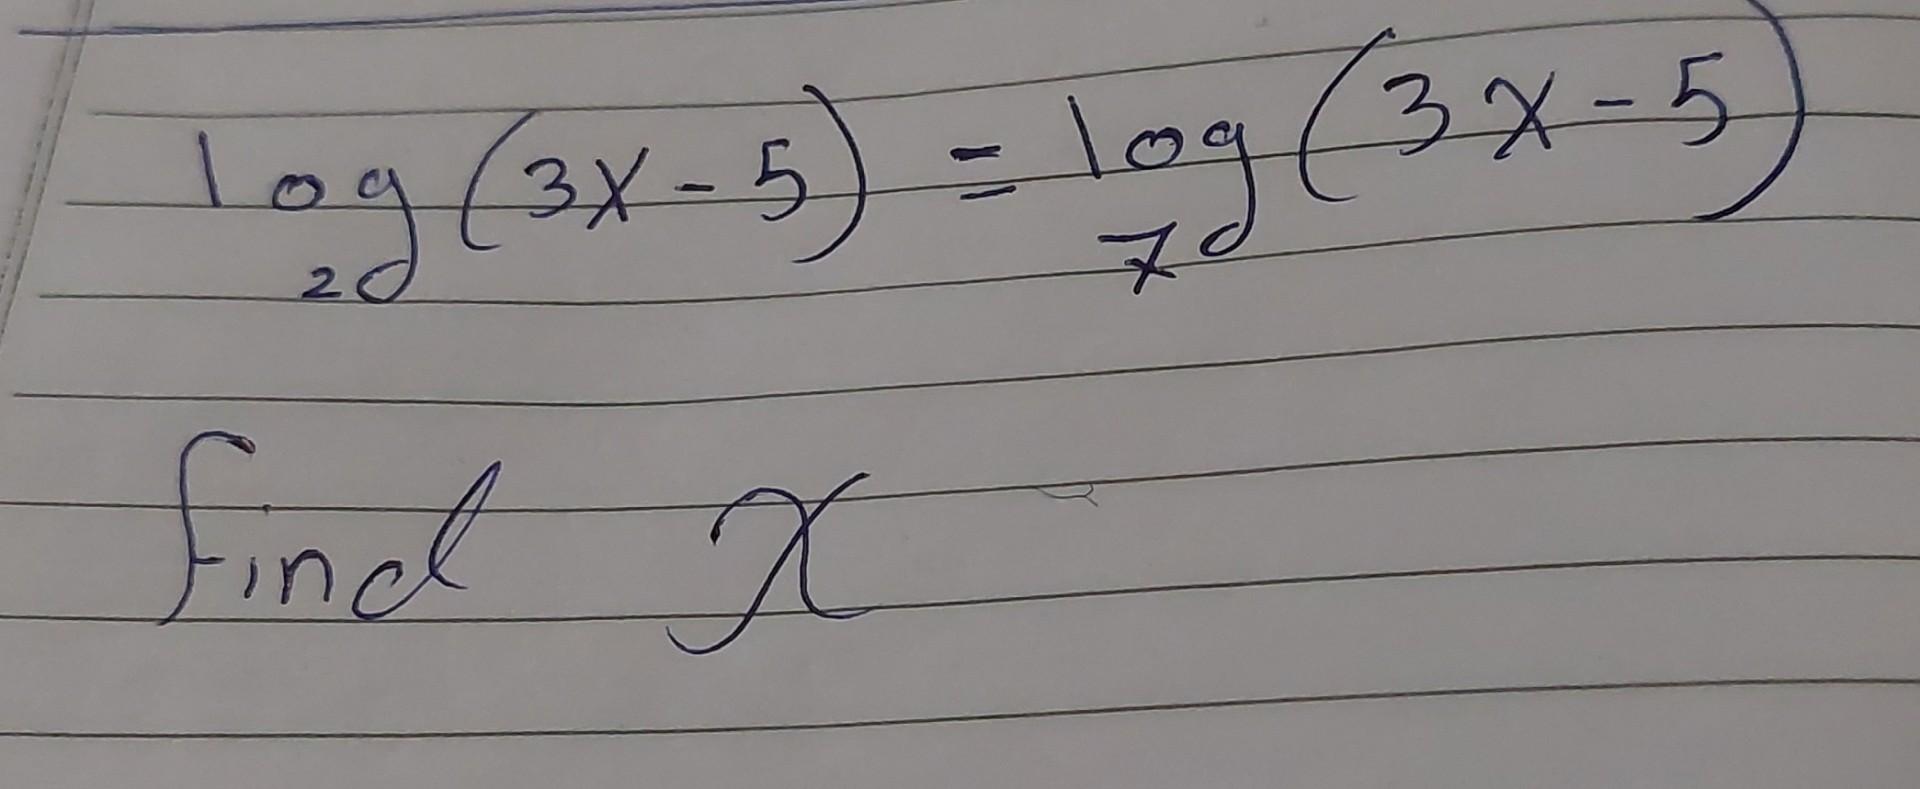 log₂(3x-5) = log₇(3x-5)
find x